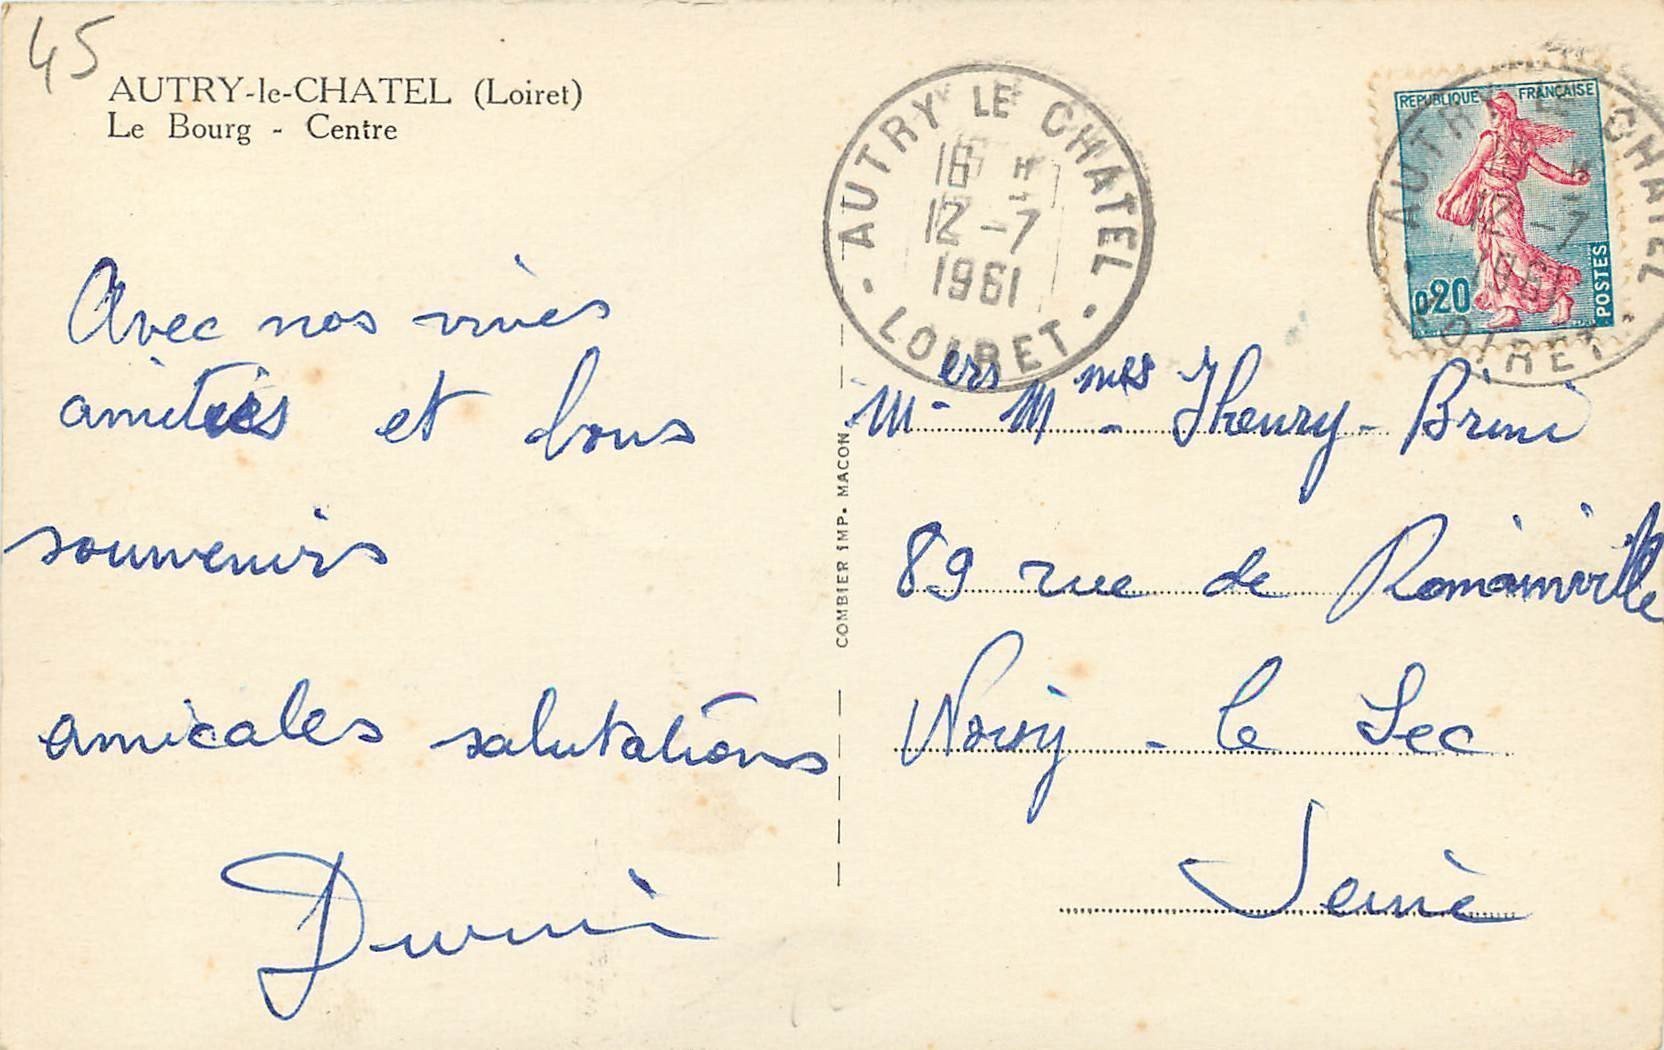 45
AUTRY-le-CHATEL (Loiret)
Le Bourg - Centre
Avec nos vives
amitiés et bons
souvenirs
amicales salutations
COMBIER IMP. MACON
AUTRY LE CHATEL
18 H
12-7
1961
LOIRET
REPUBLIQUE FRANÇAISE
0,20
POSTES
AUTRY LE CHATEL
12-7
1961
LOIRET
Mers Mmes Thenry-Brini
89 rue de Romainville
Noisy-le Sec
Seine